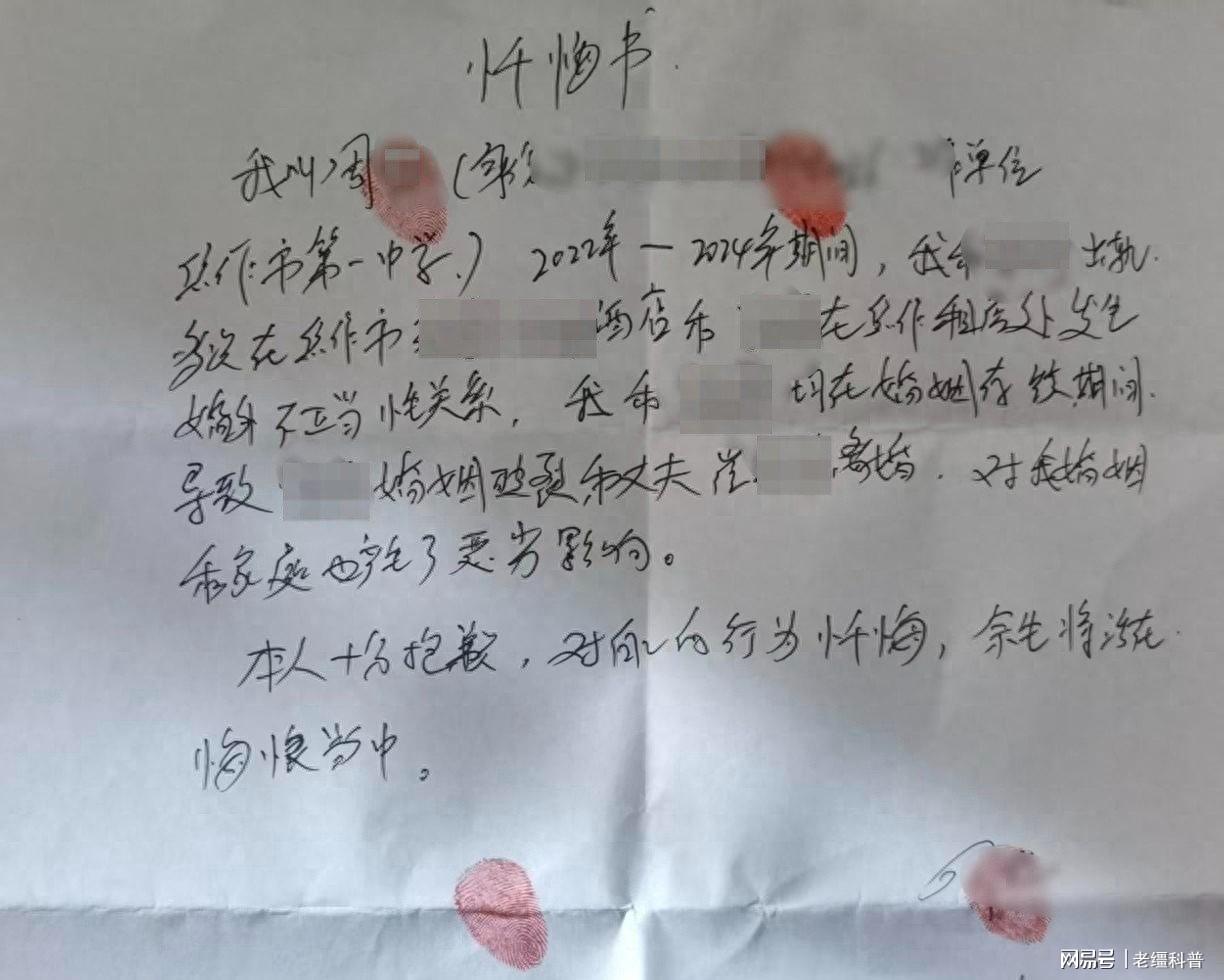 忏悔书
我叫周 (身份 单位
焦作市第一中学) 2022年—2024年期间,我和 出轨.
多次在焦作市 酒店和 在焦作租房处发生
婚外不正当性关系, 我和 均在婚姻存续期间.
导致 婚姻破裂和丈夫 离婚. 对我婚姻
和家庭也产生了恶劣影响。
本人十分抱歉,对自己的行为忏悔,余生将活在
悔恨当中。
网易号 | 老缰科普